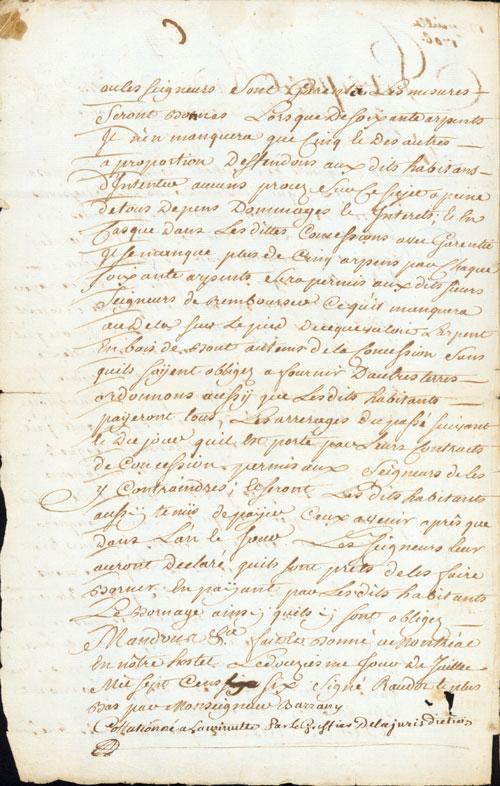 ou les seigneurs sont Garents Les mesures
Seront bonnes Lorsque De soixante arpents
Il n'en manquera que Cinq et Des autres
a proportion Deffendons aux dits habitans
D'Intenter aucuns procez sur Ce sujet a peine
de tous Depens Dommages et Interets, et En
Cas que dans Les dittes Concessions avec Garentie
Il se manque plus de Cinq arpens par Chaque
soixante arpents, sera permis aux dits sieurs
Seigneurs de Rembourser Ce qu'il manquera
au Dela sur Le pied De ce que valoit L'arpent
En bois de bout au tems de la Concession sans
quils soient obligez a fournir D'autres terres
ordonnons aussy que Les dits habitants
payeront tous, Les arrerages Du passé suivant
et Du jour qu'il Est porté par Leurs Contracts
de Concession, permis aux Seigneurs de les
y Contraindre; et seront Les dits habitants
aussy tenus de payer Ceux a venir aprés que
Dans L'an et Jour Les Seigneurs Leur
auront Declaré quils sont prets de les faire
borner En payant par Les dits habitants
Le Bornage ainsy quils y sont obligez
Mandons &c fait et Donné a Montréal
En nôtre hostel Le Douzieme Jour de Juillet
Mil Sept Cens six Signé Raudot et plus
bas par Monseigneur
Collationné a Par Le Greffier De la jurisdiction